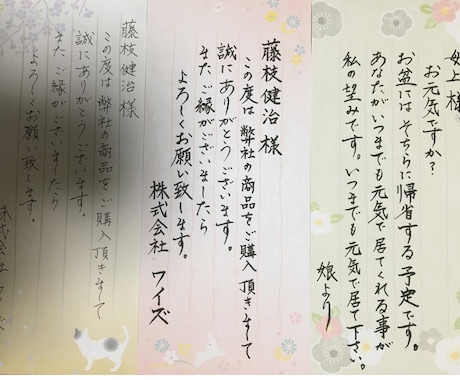 母上様
お元気ですか?
お盆にはそちらに帰省する予定です。
あなたがいつまでも元気で居てくれる事が
私の望みです。いつまでも元気で居て下さい。
娘より
藤枝健治 様
この度は弊社の商品をご購入頂きまして
誠にありがとうございます。
またご縁がございましたら
よろしくお願い致します。
株式会社 ワイズ
藤枝健治 様
この度は弊社の商品をご購入頂きまして
誠にありがとうございます。
またご縁がございましたら
よろしくお願い致します。
株式会社 ワイズ